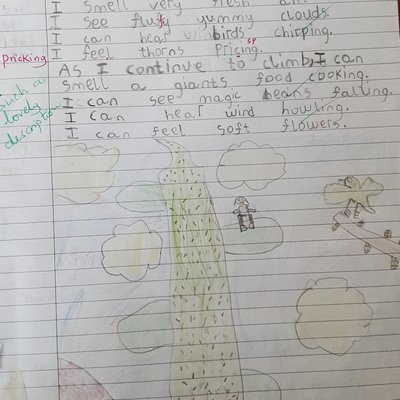 I smell very fresh air.
I see flufy yummy clouds.
I can hear birds chirping.
sp
pricking
I feel thorns Pricing.
As I continue to climb, I can
smell a giants food cooking.
I can see magic beans falling.
I can hear wind howling.
I can feel soft flowers.
such a
lovely
description